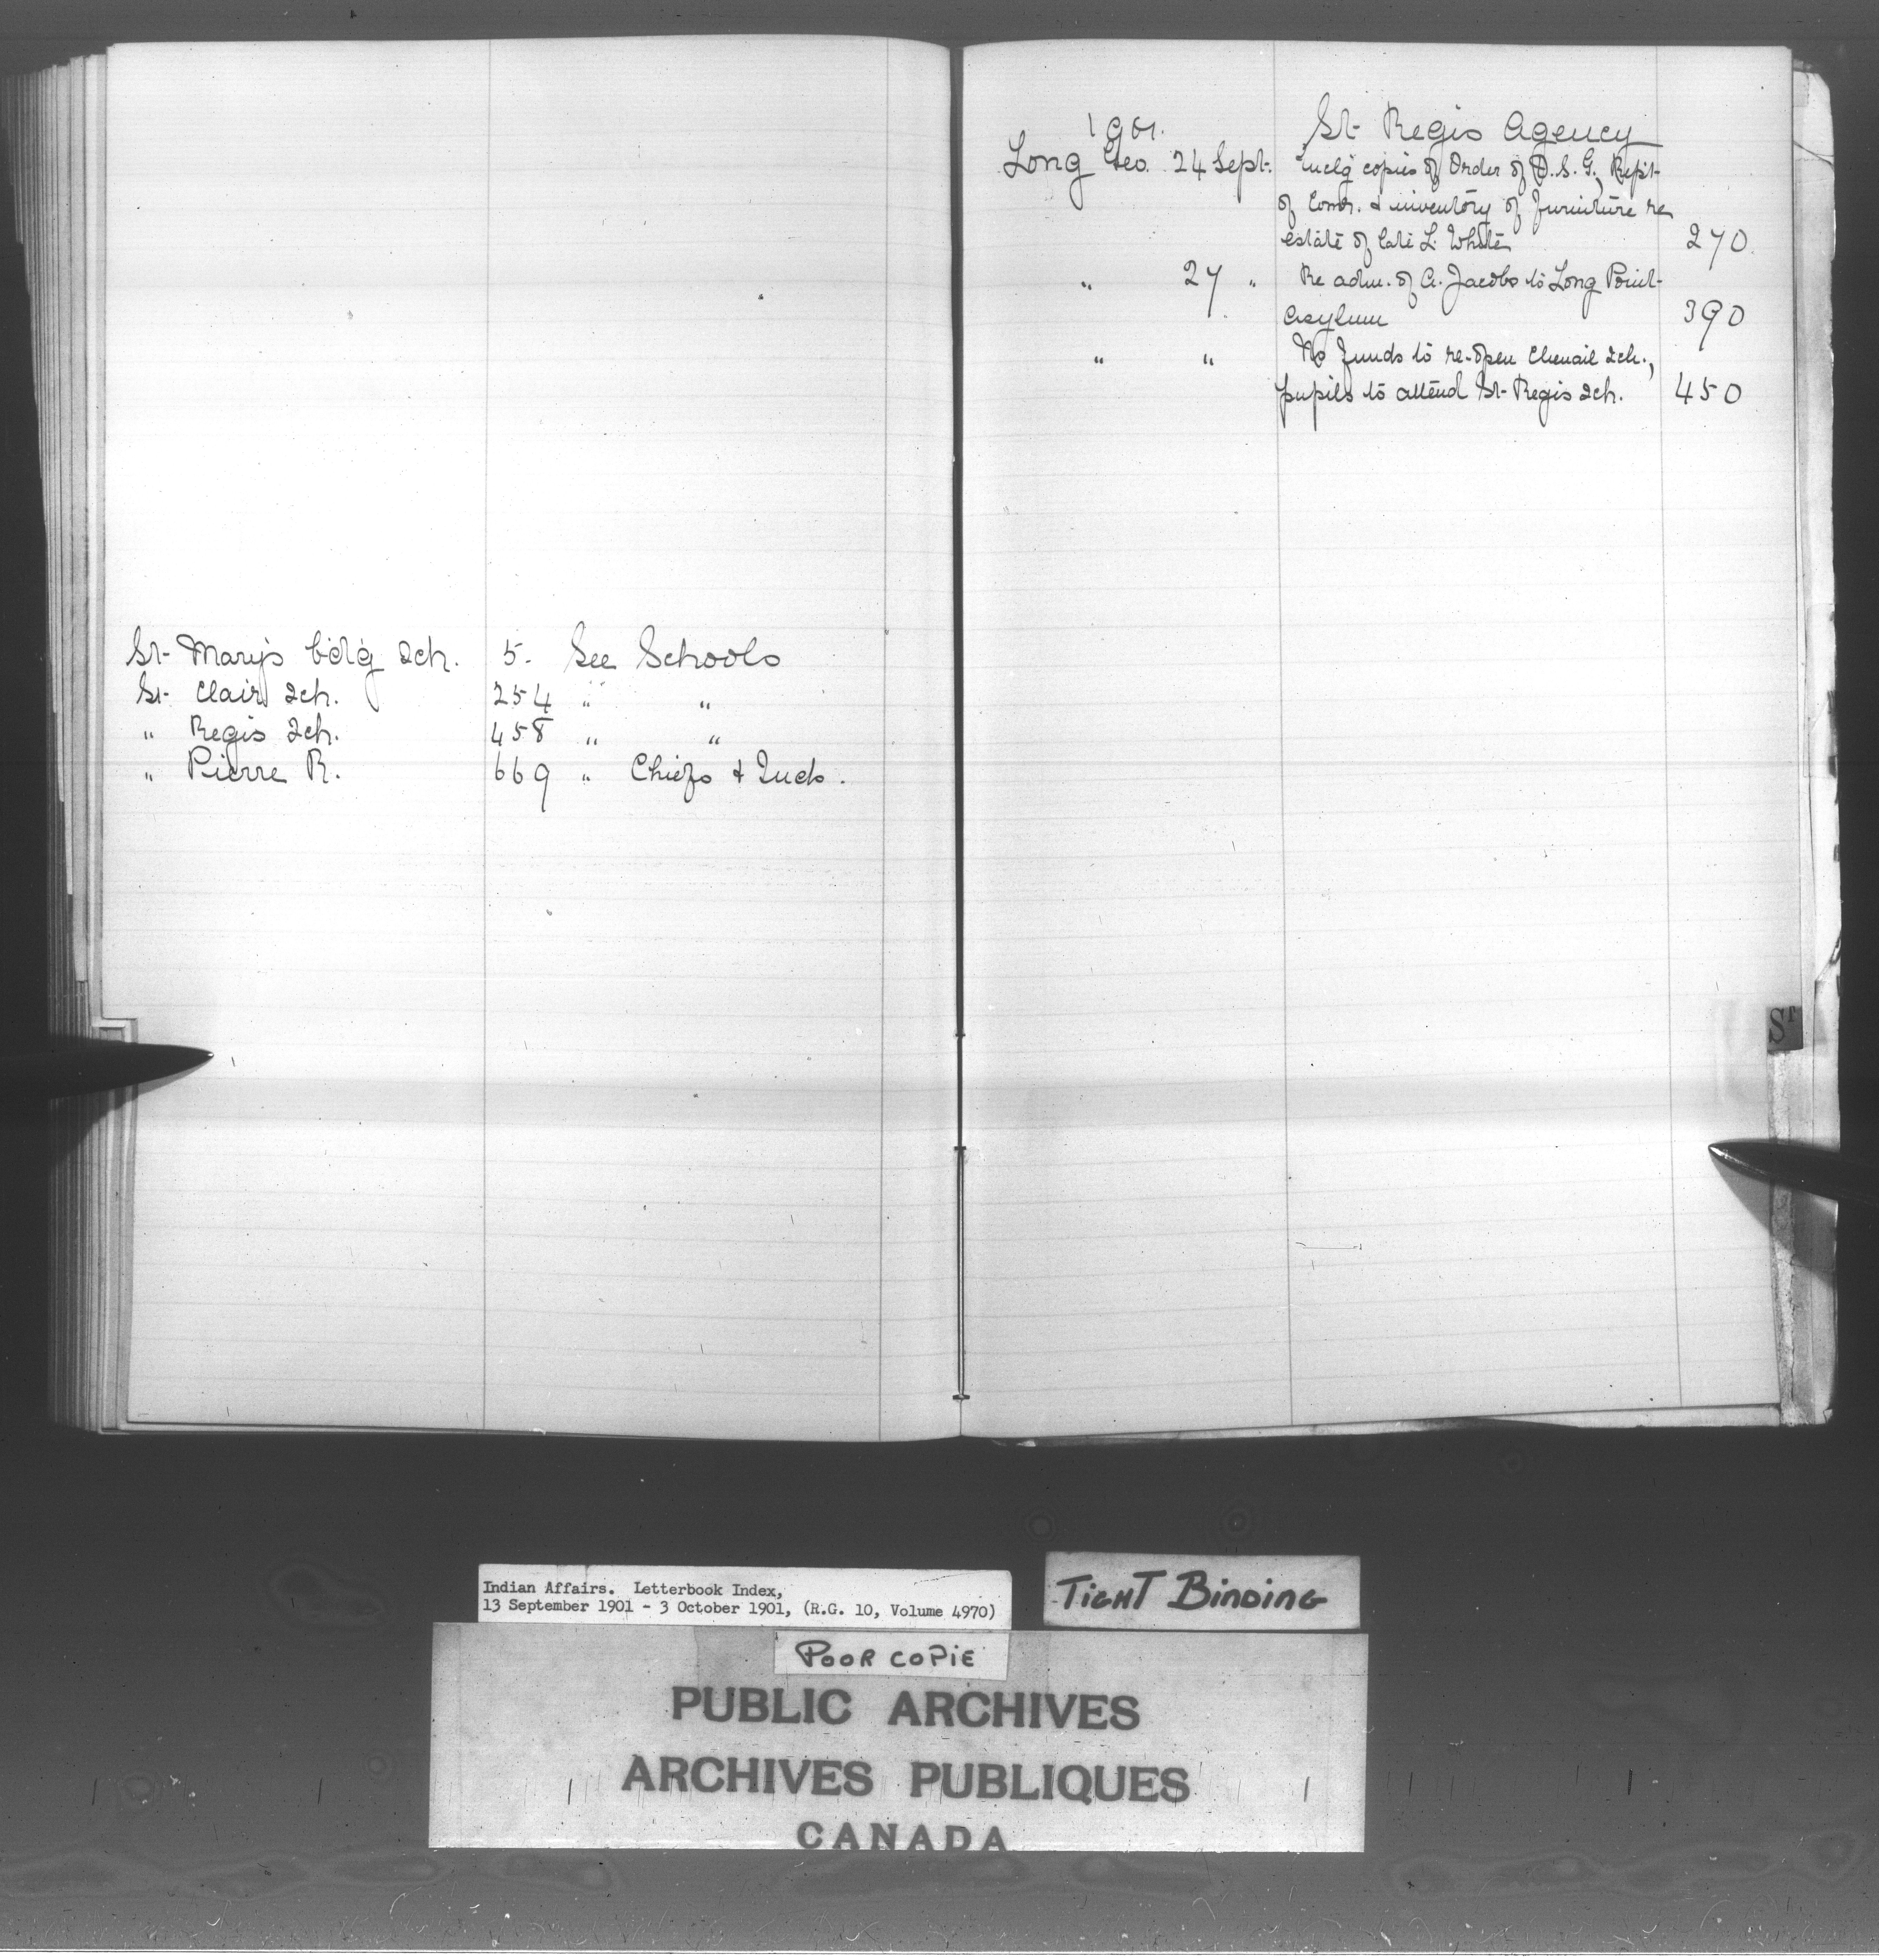 St. Mary's b'd'g Sch. 5. See Schools
St. Clair Sch. 254 " "
" Regis Sch. 458 " "
" Pierre R. 669 " Chiefs & Inds.
1901. St. Regis Agency
Long Geo. 24 Sept. Encl'g copies of Order of D.S.G., Rep't
of Comr. & inventory of furniture re
estate of late L. White 270.
" 27 " Re adm. of A. Jacobs to Long Point
Asylum 390
" " No funds to re-open Chenail Sch.,
pupils to attend St. Regis Sch. 450
ST
Indian Affairs. Letterbook Index,
13 September 1901 - 3 October 1901, (R.G. 10, Volume 4970)
TIGHT BINDING
POOR COPIE
PUBLIC ARCHIVES
ARCHIVES PUBLIQUES
CANADA